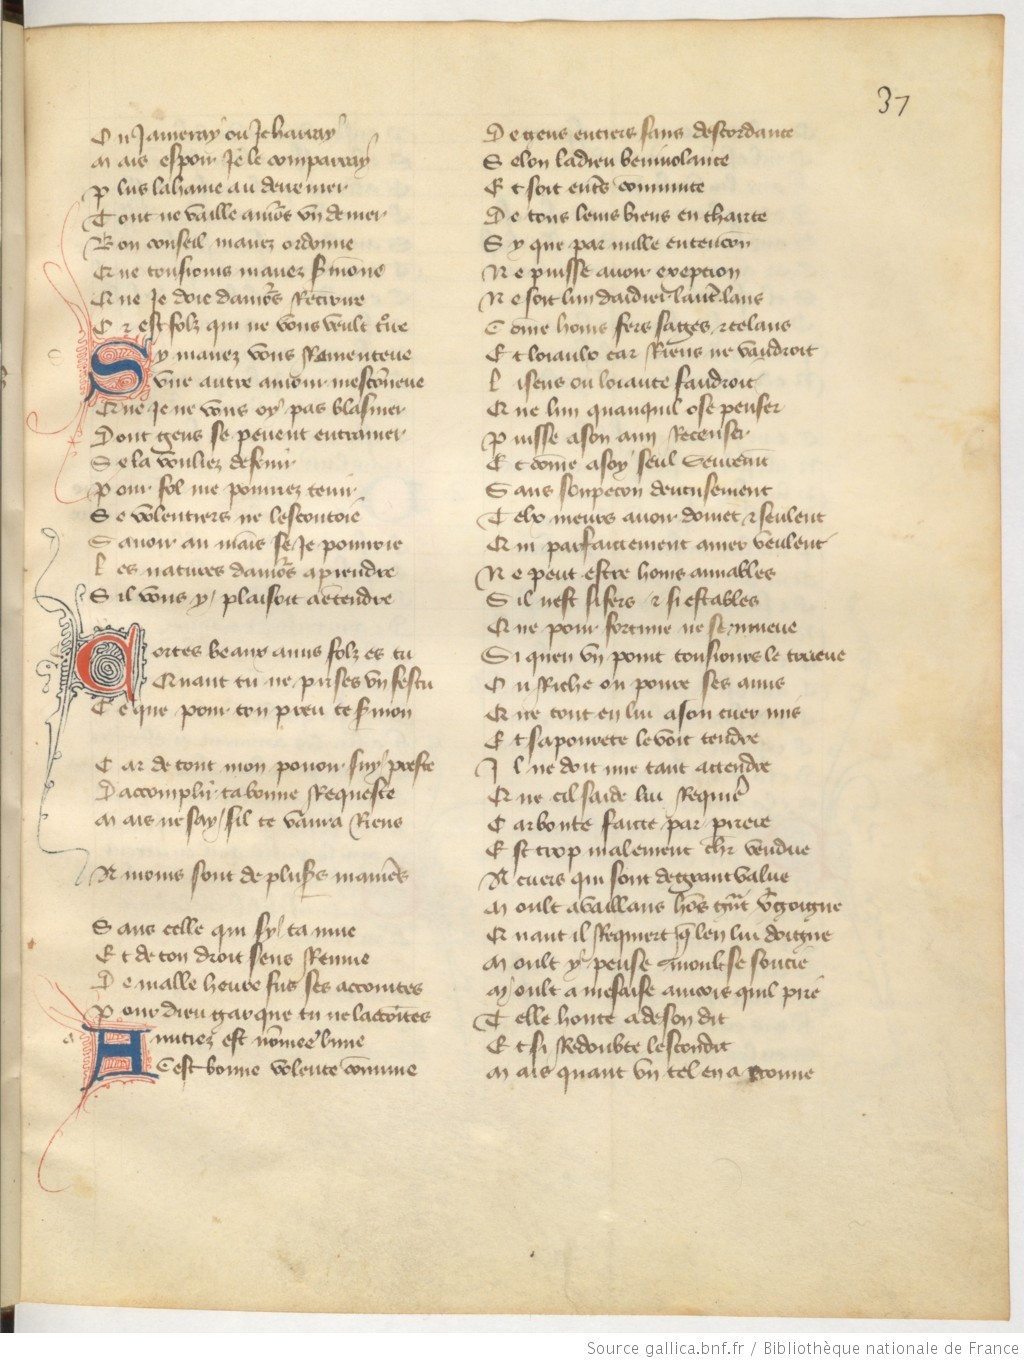 37
Ou Jameray ou Je harray
Mais espoir Je le comparray
Plus la haine au derrenier
Tout ne vaille amors un denier
Bon conseil mavez ordonne
Que tousiours mavez sermone
Que Je doie damors Recroire
Or est folz qui ne vous veult croire
Sy mavez vous Ramenteue
Une autre amour mescongneue
Que Je ne vous oy pas blasmer
Dont gens se peuent entramer
Se la vouliez defenir
Pour fol me pourriez tenir
Se volentiers ne lescoutoie
Savoir au mains se Je pourroie
Les natures damors aprendre
Sil vous y plaisoit a entendre
Certes beaux amis folz es tu
Quant tu ne prises un festu
Ce que pour ton preu te sermon
Car de tout mon povoir suy preste
Daccomplir ta bonne Requeste
Mais ne say sil te vaura Riens
Amours sont de plusrs manieres
Sans celle qui sy ta mue
Et de ton droit sens Remue
De malle heure fus ses accointes
Pour dieu gar que tu ne laccointes
a
Amitiez est nommee lune
Cest bonne volente commune
De gens entiers sans descordance
Selon la dieu benivolance
Et soit entrs commune
De tous leurs biens en charite
Sy que par nulle entencon
Ne puisse avoir exeption
Ne soit lun daidier lautre lans
Come homs fers sages et celans
Et loiaulx car Riens ne vauldroit
Li sens ou loiaute faudroit
Que lun quanquil ose penser
Puisse a son ami Recenser
Et come a soy seul seurement
Sans soupecon dencusement
Telx meurs avoir doivent et seulent
Qui parfaictement amer veulent
Ne peut estre homs amiables
Sil nest si fers et si estables
Que pour fortune ne se mueve
Si quen un point tousiours le treuve
Ou Riche ou povre ses amis
Que tout en lui a son cuer mis
Et sa pourete le voit tendre
Il ne doit mie tant attendre
Que cil saide lui Requiere
Car bonte faicte par priere
Est trop malement chier vendue
A cuers qui sont de grant value
Moult a vaillans homs grant vergoigne
Quant il Requiert que len lui doigne
Moult y pense moult se soucie
Moult a mesaise aincois quil prie
Telle honte a de son dit
Et si Redoubte lescondit
Mais quant un tel en a trouve